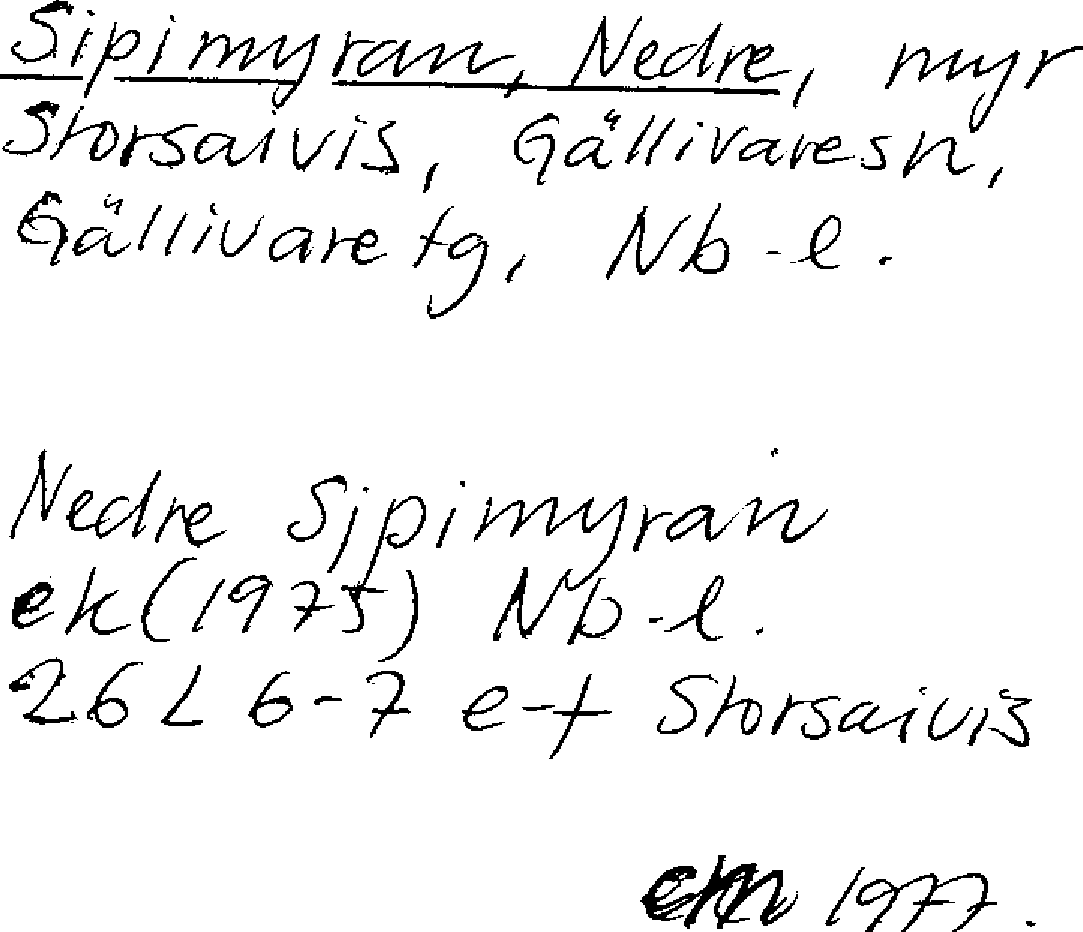 Sipimyran, Nedre, myr
Storsaivis, Gällivare sn,
Gällivare tg, Nb-l.
Nedre Sipimyran
ek (1975) Nb-l.
26L 6-7 e-f Storsaivis
1977.